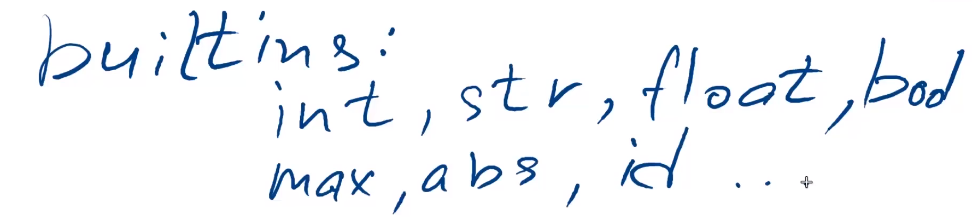 builtins:
int, str, float, bool
max, abs, id ...